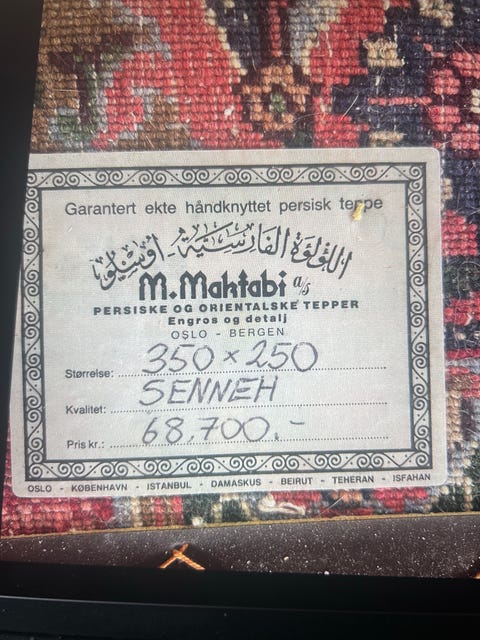 Garantert ekte håndknyttet persisk teppe
اللؤلؤة الفارسية - أوسلو
M. Maktabi a/s
PERSISKE OG ORIENTALSKE TEPPER
Engros og detalj
OSLO - BERGEN
Størrelse: 350 x 250
Kvalitet: SENNEH
Pris kr.: 68.700.-
OSLO - KØBENHAVN - ISTANBUL - DAMASKUS - BEIRUT - TEHERAN - ISFAHAN